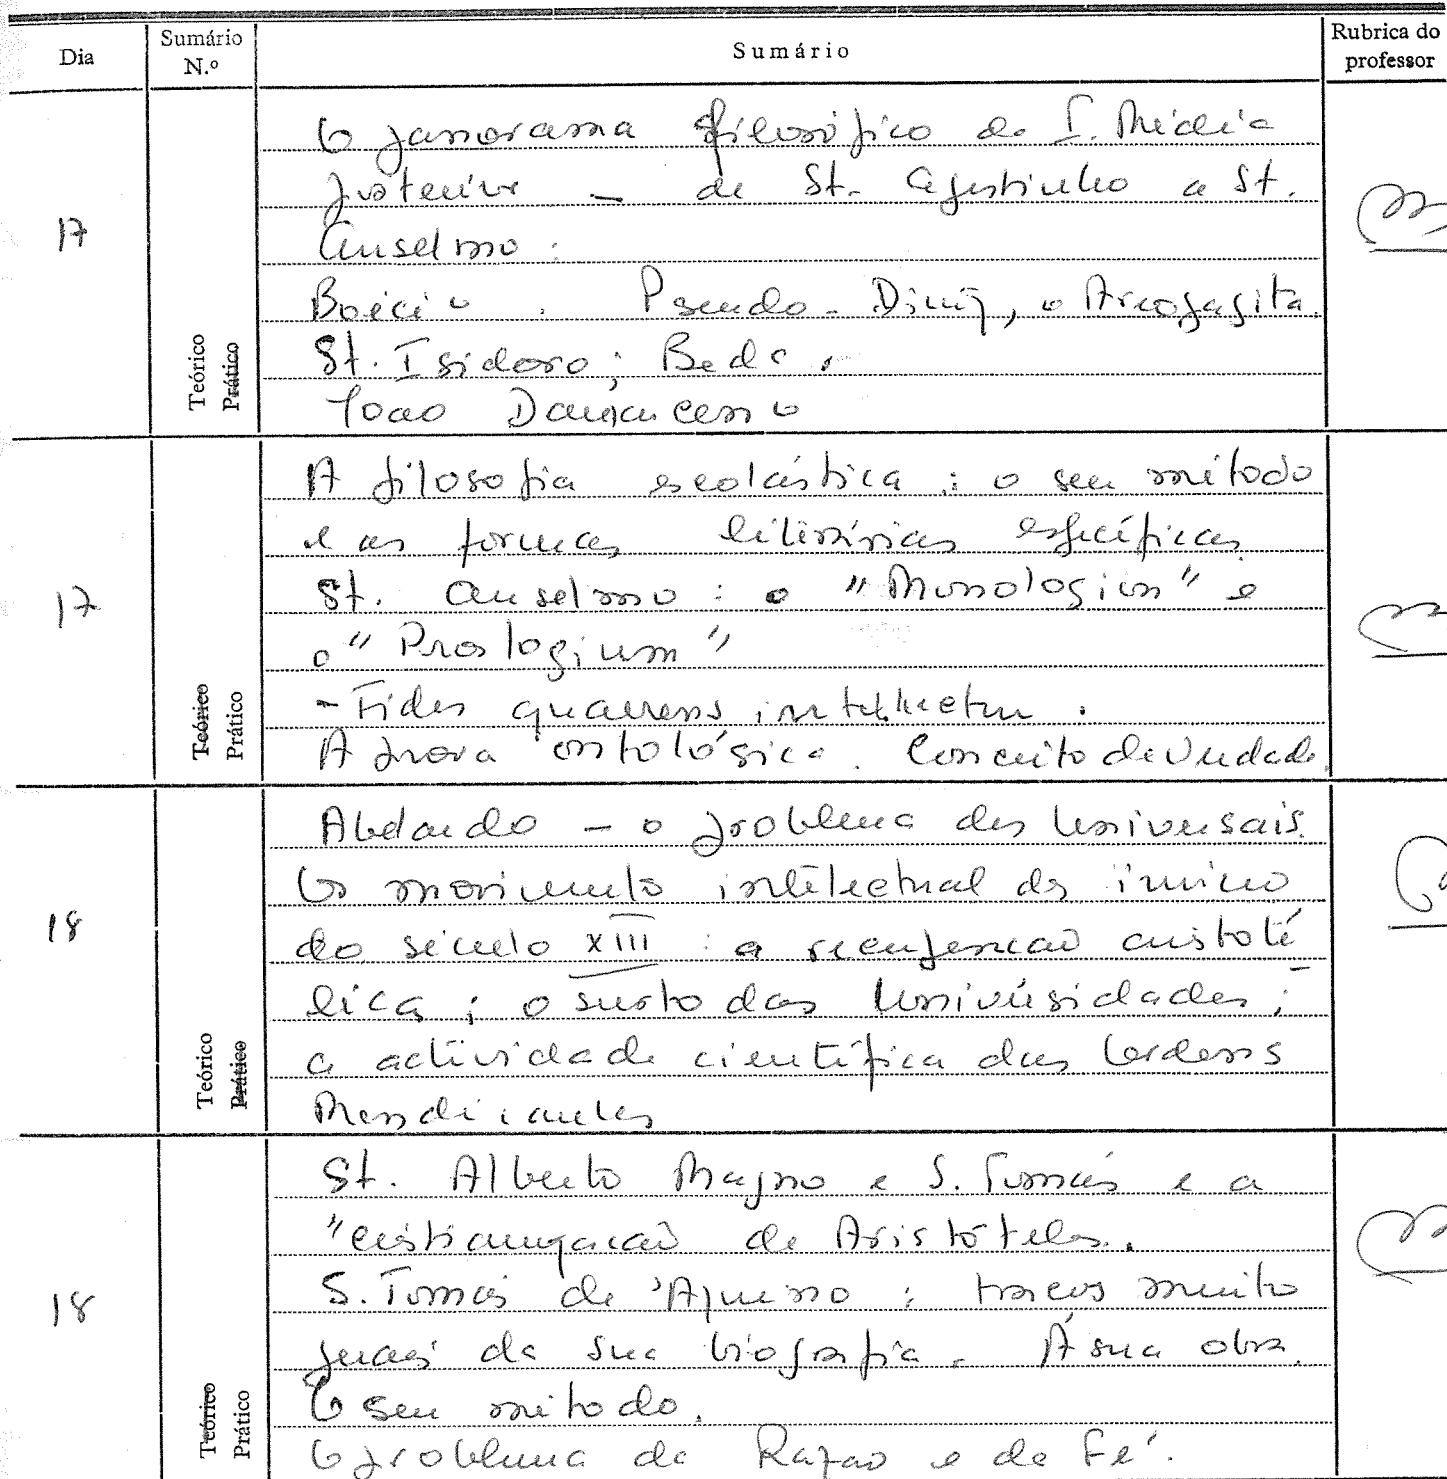 Dia
Sumário N.º
Sumário
Rubrica do professor
17
O panorama filosófico da I. Média
posterior – de St. Agostinho a St.
Anselmo:
Boécio. Pseudo-Diniz, o Areopagita.
St. Isidoro; Beda.
João Damasceno
Teórico
Prático
17
A filosofia escolástica: o seu método
e as formas literárias específicas
St. Anselmo: o "Monologium" e
o "Proslogium"
- Fides quaerens intellectum.
A prova ontológica. Conceito de Verdade.
Teórico
Prático
18
Abelardo – o problema dos Universais.
O movimento intelectual do início
do século XIII: a recuperação aristoté
lica; o surto das Universidades;
a actividade científica das Ordens
Mendicantes
Teórico
Prático
18
St. Alberto Magno e S. Tomás e a
"cristianização de Aristóteles.
S. Tomás de Aquino: traços muito
gerais da sua biografia. A sua obra.
O seu método.
O problema da Razão e da Fé.
Teórico
Prático